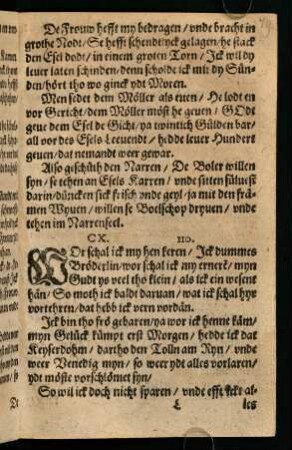 De Frouw hefft my bedragen / vnde bracht in
grothe Nodt / Se hefft schendtlyck gelagen / he stack
den Esel dodt / in einem groten Torn / Jck wil dy
leuer laten schinden / denn scholde ick mit dy Sün-
den / hört tho wo ginck ydt Moren.
Men sedet dem Möller als euen / He lodt en
vor Gericht / dem Möller möst he geuen / GOdt
geue dem Esel de Gicht / ya twintich Gülden bar /
all vor des Esels Leeuendt / hedde leuer Hundert
geuen / dat nemandt weer gewar.
Also geschüth den Narren / De Boler willen
syn / se tehen an Esels Karren / vnde sitten süluest
darin / düncken sick frisch vnde geyl / ja mit den frä-
men Wyuen / willen se Boelschop dryuen / vnde
tehen im Narrenseel.
CX. 110.
WOr schal ick my hen keren / Jck dummes
Bröderlin / wor schal ick my ernerē / myn
Gudt ys veel tho klein / als ick ein wesent
hän / So moth ick baldt daruan / wat ick schal hyr
vortehren / dat hebb ick vern vordän.
Jck bin tho frö gebaren / ya wor ick henne käm /
myn Gelück kümpt erst Morgen / hedde ick dat
Keyserdohm / dartho den Tolln am Ryn / vnde
weer Venedig myn / so weer ydt alles vorlaren /
ydt möste vorschlömet syn /
So wil ick doch nicht sparen / vnde efft ickt al-
L les